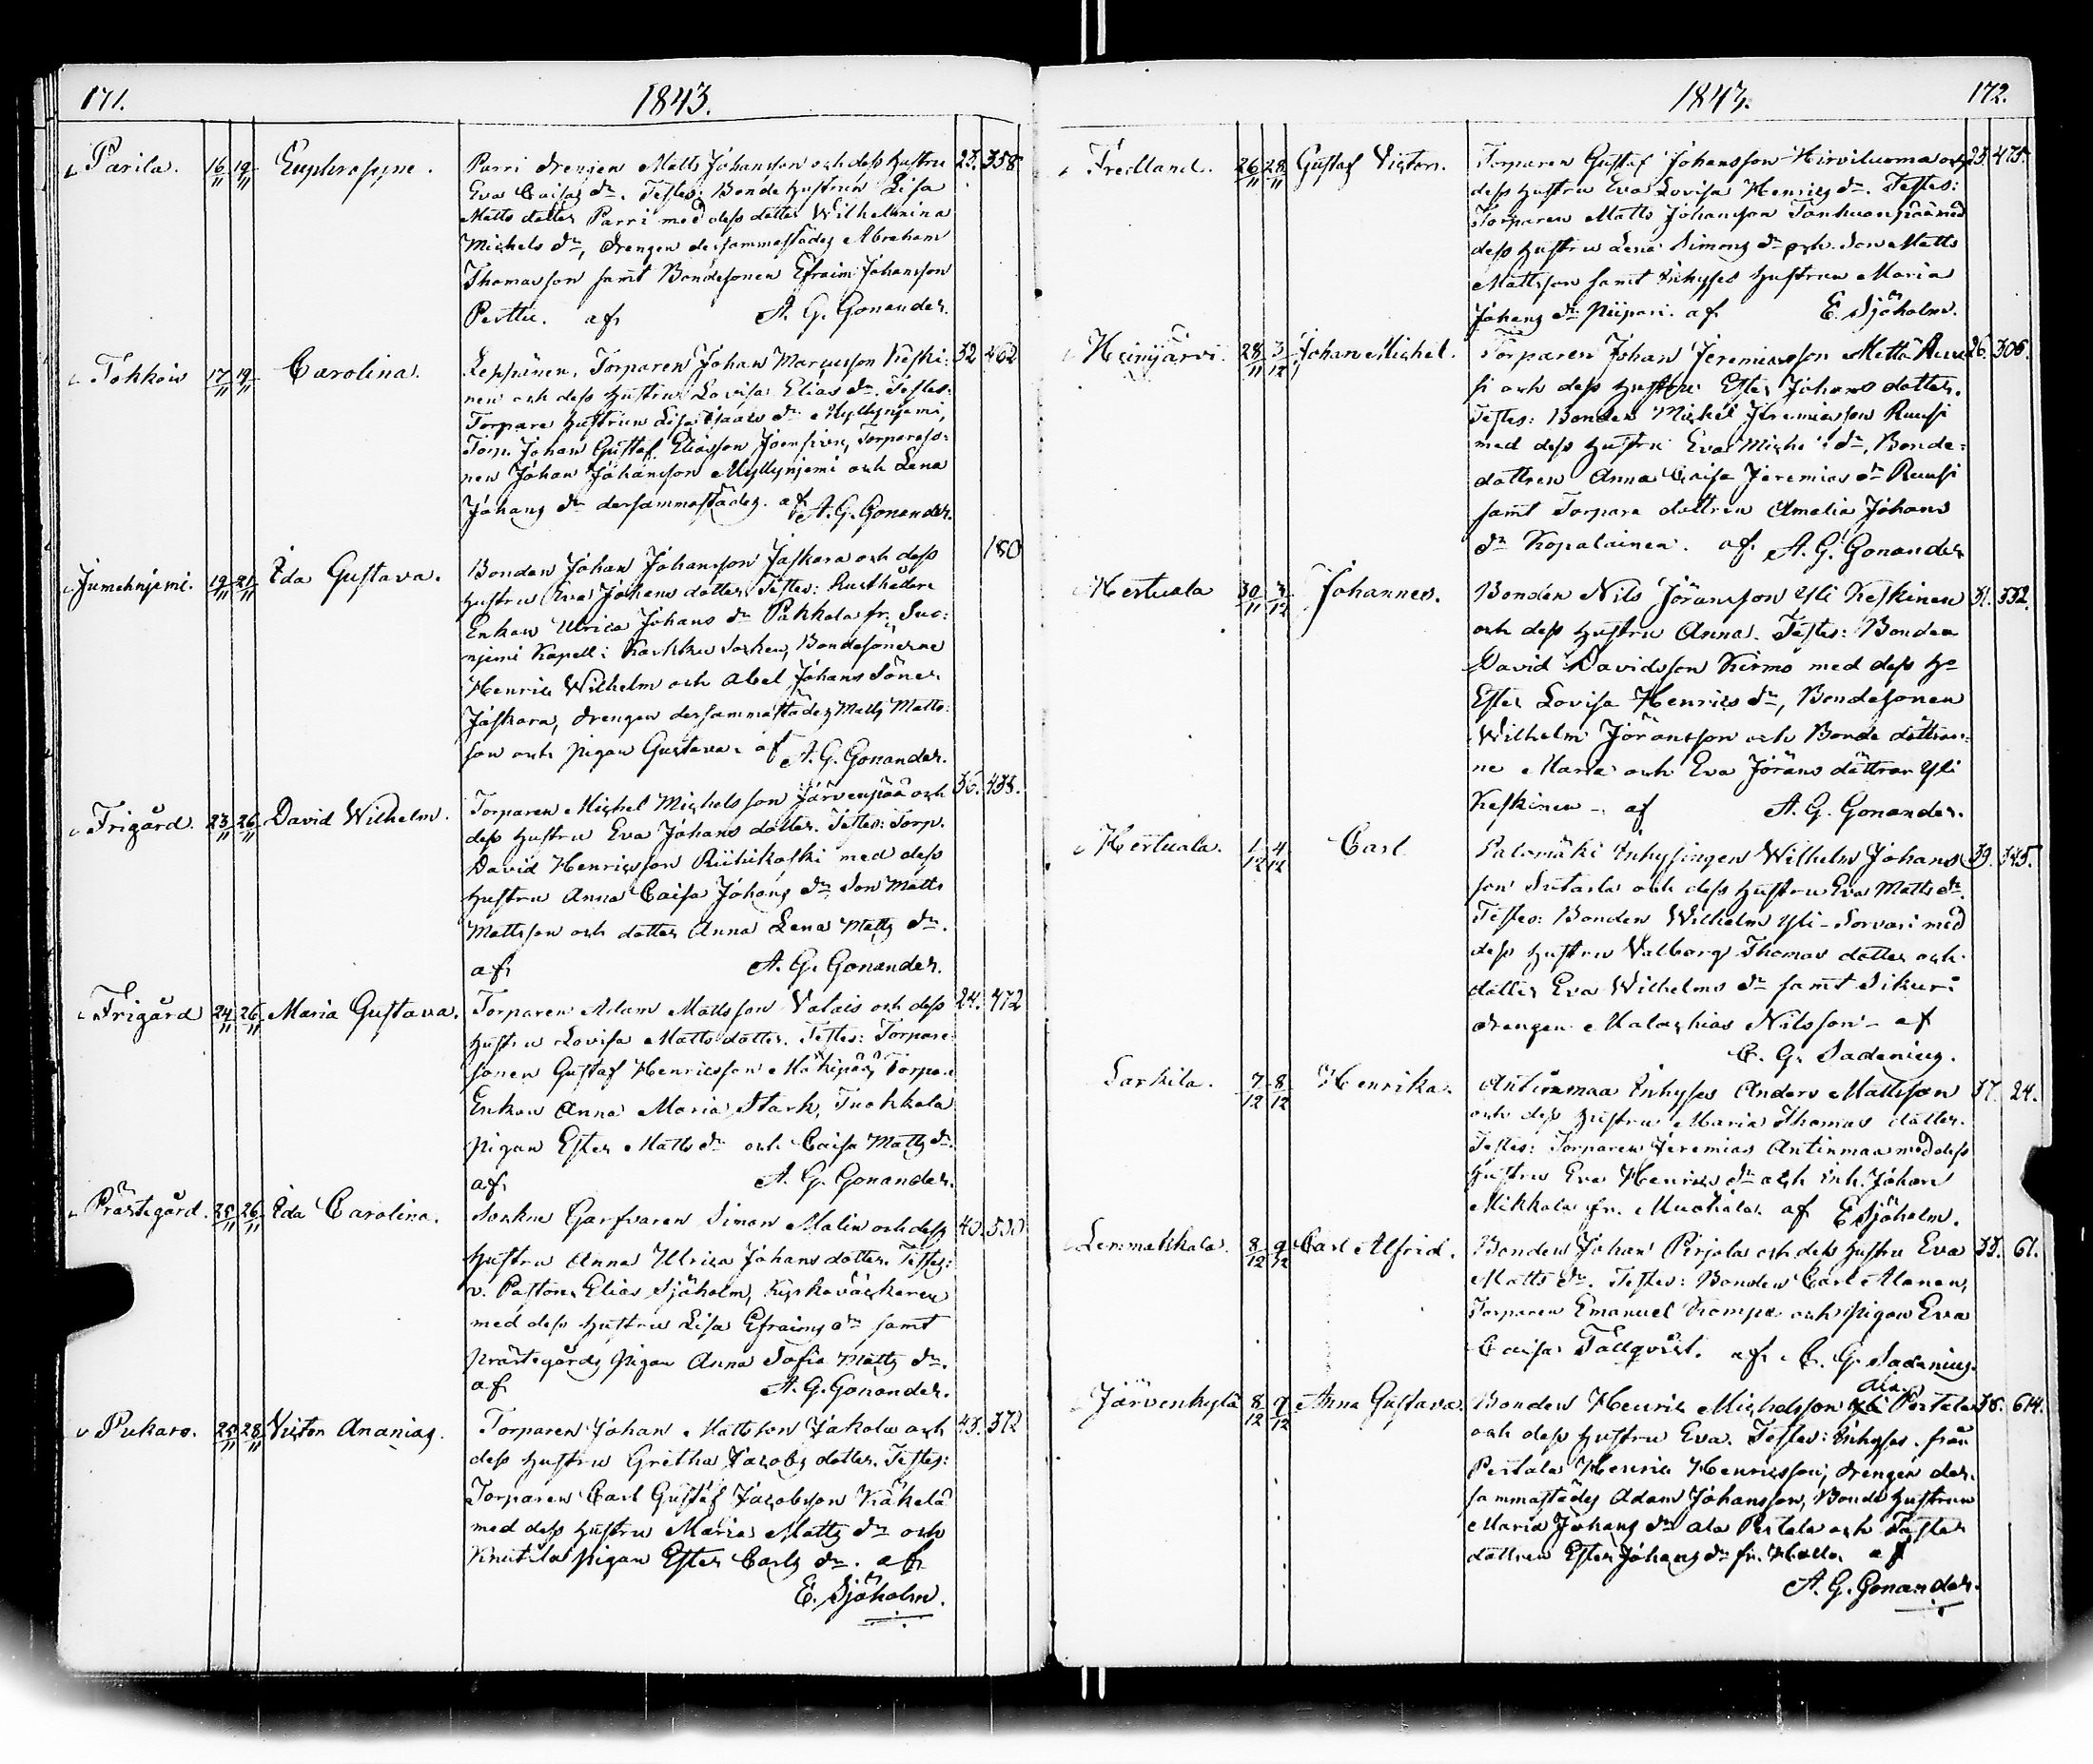 171. 1843.
Parila. 16/11 19/11 Euphrosyne. Parri drengen Matts Johansson och dess hustru 23. 358
Eva Caisas dr. Testes: Bonde hustrun Lisa
Matts dotter Parri med dess dotter Wilhelmina
Michels dr, drengen dersammastädes Abraham
Thomasson samt Bondesonen Efraim Johansson
Perttu. af A. G. Gonander.
Tokkois 17/11 19/11 Carolina. Leppänen, Torparen Johan Marcusson Keski- 32 462
nen och dess hustru Lovisa Elias dr. Testes:
Torpare hustrun Lisa Isaacs dr Myllynjemi,
Torp. Johan Gustaf Eliasson Joensivu, Torpareso-
nen Johan Johansson Myllynjemi och Lena
Johans dr dersammastädes. af A. G. Gonander.
Jumehnjemi. 19/11 21/11 Ida Gustava. Bonden Johan Johansson Jaskara och dess 180
hustru Eva Johans dotter. Testes: Rusthållare
Enkan Ulrica Johans dr Pakkala fr. Suo-
njemi Kapell i Karkku socken, Bondesönerne
Henric Wilhelm och Abel Johans Söner
Jaskara, drengen dersammastädes Matts Matts-
son och pigan Gustava. af A. G. Gonander.
Frigård. 23/11 26/11 David Wilhelm. Torparen Michel Michelsson Järvenpää och 36. 435.
dess hustru Eva Johans dotter. Testes: Torp.
David Henricsson Riihikoski med dess
hustru Anna Caisa Johans dr, Son Matts
Mattsson och dotter Anna Lena Matts dr.
af A. G. Gonander.
Frigård 24/11 26/11 Maria Gustava. Torparen Adam Mattsson Valais och dess 24. 472
hustru Lovisa Matts dotter. Testes: Torpare
sonen Gustaf Henricsson Mäkipää, Torpare
Enkan Anna Maria Stark, Tuokkola
pigan Ester Matts dr och Caisa Matts dr.
af A. G. Gonander.
Prästegård. 25/11 26/11 Ida Carolina. Sockne Garfvaren Simon Malin och dess 40. 530
hustru Anna Ulrica Johans dotter. Testes:
v. Pastor Elias Sjöholm, Kyrkoväcktaren
med dess hustru Lisa Efraims dr samt
prästegårds pigan Anna Sofia Matts dr.
af A. G. Gonander.
Pukaro. 25/11 28/11 Victor Ananias. Torparen Johan Mattsson Jakola och 43. 372
dess hustru Gretha Jacobs dotter. Testes:
Torparen Carl Gustaf Jacobsson Käkelä
med dess hustru Maria Matts dr och
Knutila pigan Ester Carls dr. af
E. Sjöholm.
1843. 172.
Fredland. 26/11 28/11 Gustaf Victor. Torparen Gustaf Johansson Hirviluoma och 23. 475.
dess hustru Eva Lovisa Henrics dr. Testes:
Torparen Matts Johansson Tanhuanpää med
dess hustru Lena Simons dr och Son Matts
Mattsson samt Inhyses hustrun Maria
Johans dr Piipari. af E. Sjöholm.
Heinijärvi. 28/11 3/12 Johan Michel. Torparen Johan Jeremiasson Mettä Ruu- 26. 306.
si och dess hustru Ester Johans dotter.
Testes: Bonden Michel Jeremiasson Ruusi
med dess hustru Eva Michels dr, Bonde-
dottren Anna Caisa Jeremias dr Ruusi
samt Torpare dottren Amalia Johans
dr Kopalainen. af A. G. Gonander
Hertuala 30/11 3/12 Johannes. Bonden Nils Jöransson Yli Keskinen 31. 332.
och dess hustru Anna. Testes: Bonden
David Davidsson Kirmo med dess hu
Ester Lovisa Henrics dr, Bondesonen
Wilhelm Jöransson och Bonde döttrar-
ne Maria och Eva Jörans döttrar Yli
Keskinen - af A. G. Gonander.
Hertuala. 1/12 4/12 Carl Salomäki Inhysingen Wilhelm Johans 39. 345.
son Sutarla och dess hustru Eva Matts dr.
Testes: Bonden Wilhelm Yli-Sorvari med
dess hustru Valborg Thomas dotter och
dotter Eva Wilhelms dr samt Sikuri
drengen Malachias Nilsson - af
C. G. Sadenius.
Sarkila. 7/12 8/12 Henrika. Antinmaa Inhyses Anders Mattsson 37. 24.
och dess hustru Maria Thomas dotter.
Testes: Torparen Jeremias Antinmaa med dess
hustru Eva Henrics dr och inh. Johan
Mikkola fr. Muohiala. af E. Sjöholm.
Lemmakkala. 8/12 9/12 Carl Alfrid. Bonden Johan Pirjola och dess hustru Eva 33. 61.
Matts dr. Testes: Bonden Carl Alanen,
Torparen Emanuel Kompa och pigan Eva
Caisa Tallqvist. af C. G. Sadenius.
Järvenkylä 8/12 9/12 Anna Gustava. Bonden Henric Michelsson Ala Pertala 38. 614.
och dess hustru Eva. Testes: Inhyses från
Pertala Henric Henricsson, drengen der-
sammastädes Adam Johansson, Bonde hustrun
Maria Johans dr Ala Pertala och Foster
dottren Ester Johans dr fr. Halla. af
A. G. Gonander.